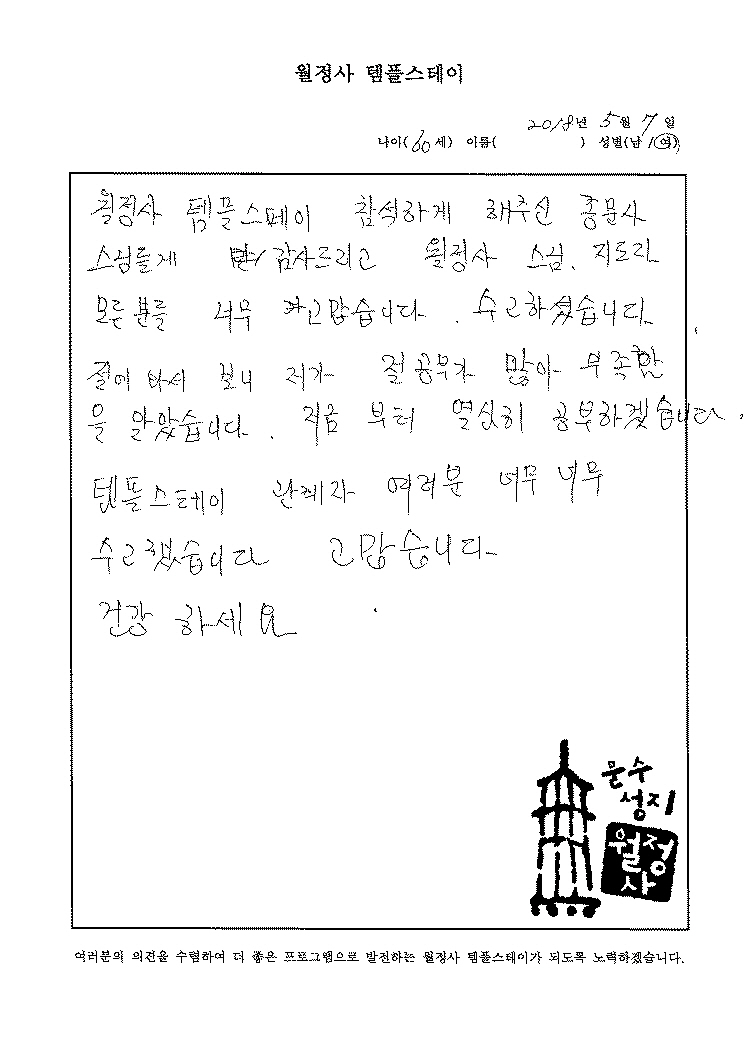 월정사 템플스테이
2018년 5월 7일
나이(60세) 이름( ) 성별(남/여)
월정사 템플스페이 참석하게 해주신
스님들게 감사드리고 월정사 스님, 지도라
모든분들 너무 고맙습니다. 수고하셨습니다.
절에 와서 보니 저가 절공부가 많아 부족함
을 알았습니다. 지금 부터 열심히 공부하겠습니다.
템플스테이 관계자 여러분 너무 너무
수고했습니다 고맙습니다
건강 하세요
문수
성지
월정
사
여러분의 의견을 수렴하여 더 좋은 프로그램으로 발전하는 월정사 템플스테이가 되도록 노력하겠습니다.